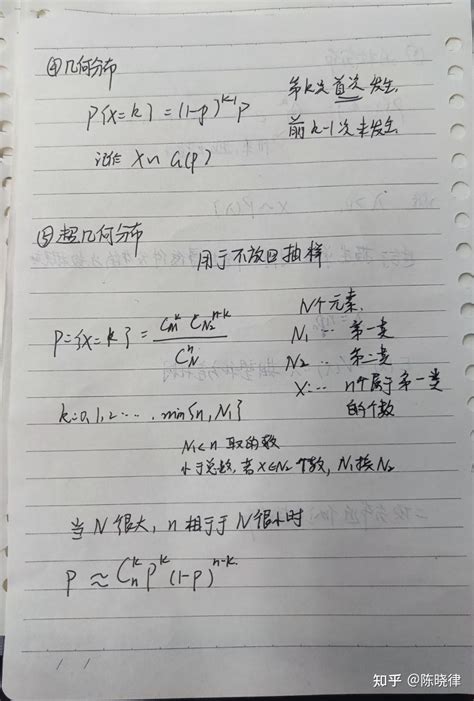 ④几何分布
P{X=k} = (1-p)^{k-1}p 第k次首次发生
前k-1次未发生
记作 X~G(p)
⑤超几何分布
用于不放回抽样
P={X=k} = \frac{C_{N_1}^{k} C_{N_2}^{n-k}}{C_N^n} N个元素
N₁ ... 第一类
N₂ ... 第二类
X: ... n个属于第一类
的个数
k=0,1,2 ... . min{n, N₁}
N₁<n 取的数
小于总数, 若X∈N₂个数, N₁换N₂
当 N 很大, n 相于于 N 很小时
P ≈ C_n^k p^k (1-p)^{n-k}
知乎 @陈晓律